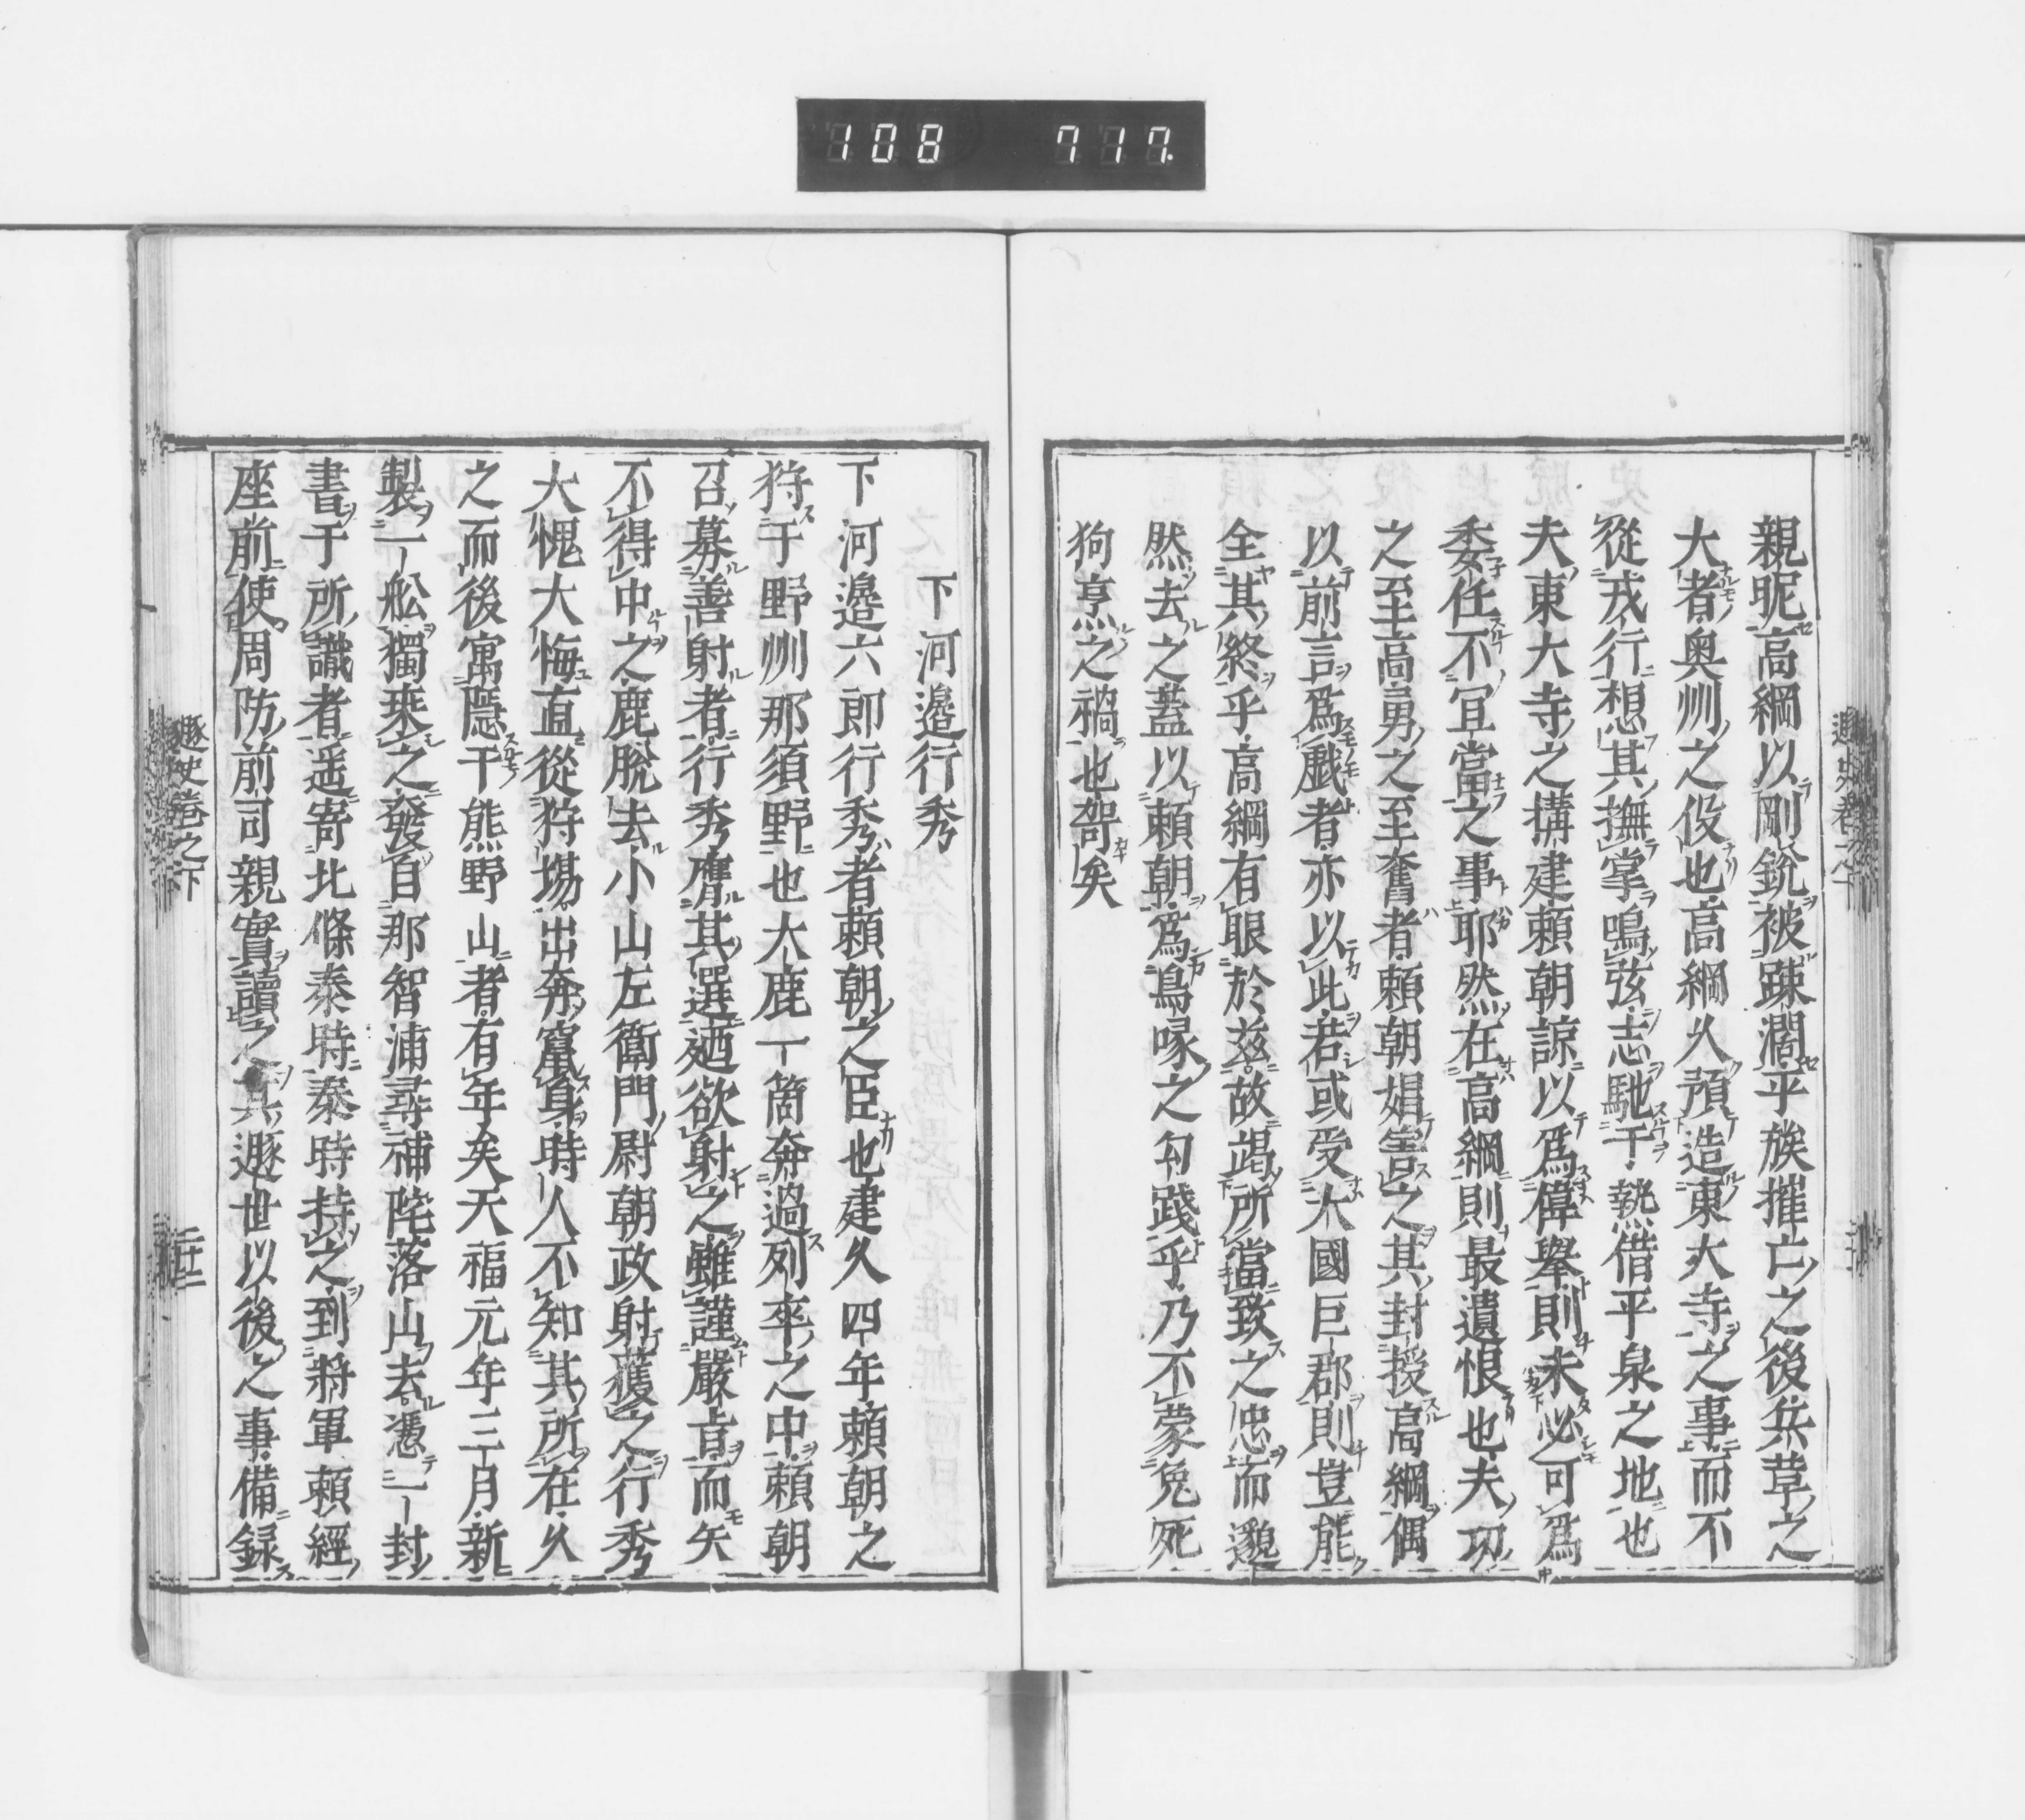 108 717
親昵高綱以剛銳被踈濶乎族摧亡之後兵革之
大者奥州之役也高綱久預造東大寺之事而不
從戎行想其撫掌鳴弦志馳于熱借平泉之地也
夫東大寺之搆建頼朝諒以爲偉擧則未必可爲
委任不冝當之事耶然在高綱則最遺恨也夫功
之至高勇之至奮者頼朝娼害之其封授高綱偶
以前言爲戯者亦以此若或受大國巨郡則豈能
全其終乎高綱有眼於茲故竭所當致之忠而邈
然去之蓋以頼朝爲鳥喙之勾踐乎乃不蒙兔死
狗烹之禍也哿矣
下河邉行秀
下河邉六郎行秀者頼朝之臣也建久四年頼朝之
狩于野州那須野也大鹿一箇奔過列卒之中頼朝
召募善射者行秀膺其選廼欲射之雖謹嚴㫖而矢
不得中之鹿脱去小山左衞門尉朝政射獲之行秀
大愧大悔直從狩場出奔竄身時人不知其所在久
之而後寓隱于熊野山者有年矣天福元年三月新
製一舩獨乗之發自那智浦尋補陀落山去憑一封
書于所識者遥寄北條泰時泰時持之到將軍頼經
座前使周防前司親實讀之其遯世以後之事備録
遯史卷之下